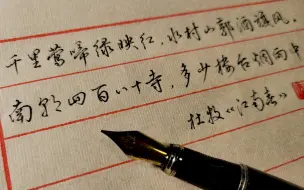 千里莺啼绿映红，水村山郭酒旗风。
南朝四百八十寺，多少楼台烟雨中
杜牧《江南春》